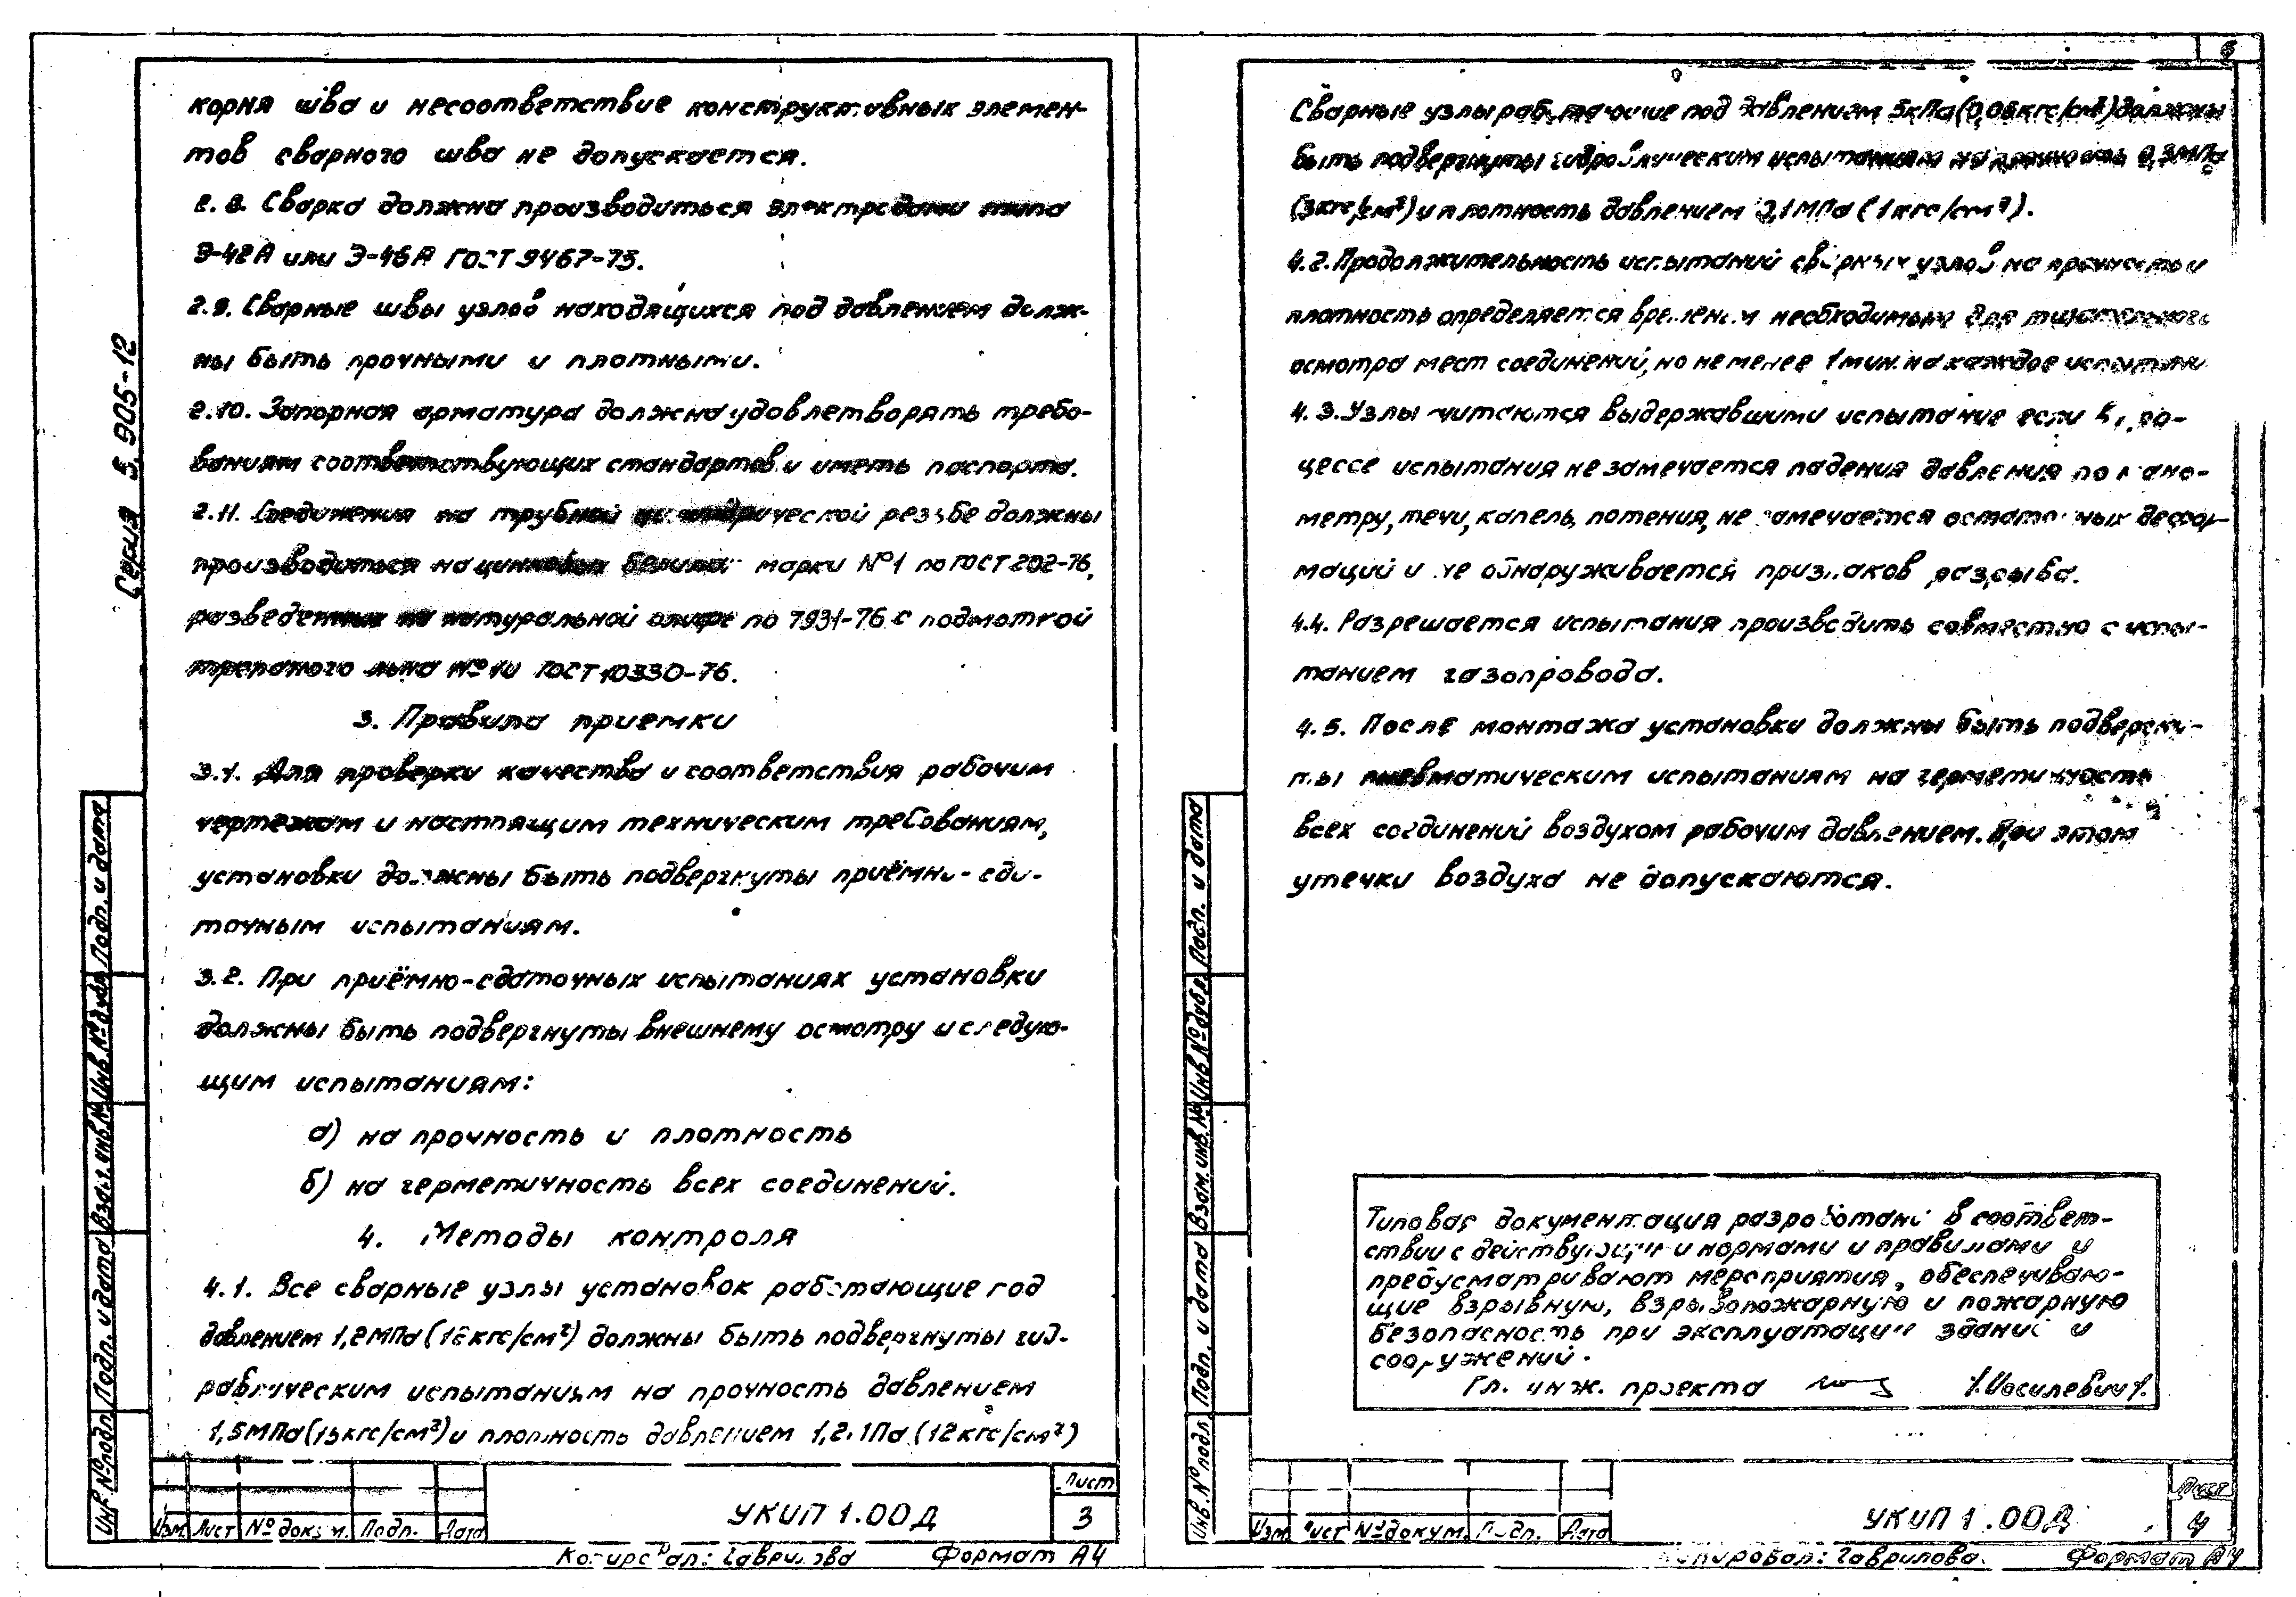 корня шва и несоответствие конструктивных элемен-
тов сварного шва не допускается.
2.8. Сварка должна производиться электродами типа
Э-42А или Э-46А ГОСТ 9467-75.
2.9. Сварные швы узлов находящихся под давлением долж-
ны быть прочными и плотными.
2.10. Запорная арматура должна удовлетворять требо-
ваниям соответствующих стандартов и иметь паспорта.
2.11. Соединения на трубной цилиндрической резьбе должны
производиться на цинковых белилах марки №1 по ГОСТ 202-76,
разведенных на натуральной олифе по 7931-76 с подмоткой
трепаного льна №10 ГОСТ 10330-76.
3. Правила приемки
3.1. Для проверки качества и соответствия рабочим
чертежам и настоящим техническим требованиям,
установки должны быть подвергнуты приёмно-сда-
точным испытаниям.
3.2. При приёмно-сдаточных испытаниях установки
должны быть подвергнуты внешнему осмотру и следую-
щим испытаниям:
а) на прочность и плотность
б) на герметичность всех соединений.
4. Методы контроля
4.1. Все сварные узлы установок работающие под
давлением 1,2 МПа (12 кгс/см²) должны быть подвергнуты гид-
равлическим испытаниям на прочность давлением
1,5 МПа (15 кгс/см²) и плотность давлением 1,2 МПа (12 кгс/см²)
Серия 5.905-12
Подп. и дата
Инв. № дубл.
Взам. инв. №
Подп. и дата
Инв. № подл.
Изм. Лист № докум. Подп. Дата
УКИП 1.00Д
Лист
3
Копировал: Гаврилова Формат А4
Сварные узлы работающие под давлением 5кПа (0,06кгс/см²) должны
быть подвергнуты гидравлическим испытаниям на прочность 0,3МПа
(3кгс/см²) и плотность давлением 0,1 МПа (1 кгс/см²).
4.2. Продолжительность испытаний сварных узлов на прочность и
плотность определяется временем необходимым для тщательного
осмотра мест соединений, но не менее 1 мин. на каждое испытание
4.3. Узлы читаются выдержавшими испытание если в про-
цессе испытания не замечается падения давления по мано-
метру, течи, капель, потения, не замечается остаточных дефор-
маций и не обнаруживается признаков разрыва.
4.4. Разрешается испытания производить совместно с испы-
танием газопровода.
4.5. После монтажа установки должны быть подвергну-
ты пневматическим испытаниям на герметичность
всех соединений воздухом рабочим давлением. При этом
утечки воздуха не допускаются.
Типовая документация разработана в соответ-
ствии с действующими нормами и правилами и
предусматривают мероприятия, обеспечиваю-
щие взрывную, взрывопожарную и пожарную
безопасность при эксплуатации зданий и
сооружений.
Гл. инж. проекта
Подп. и дата
Инв. № дубл.
Взам. инв. №
Подп. и дата
Инв. № подл.
Изм. Лист № докум. Подп. Дата
УКИП 1.00Д
Лист
4
Копировал: Гаврилова Формат А4